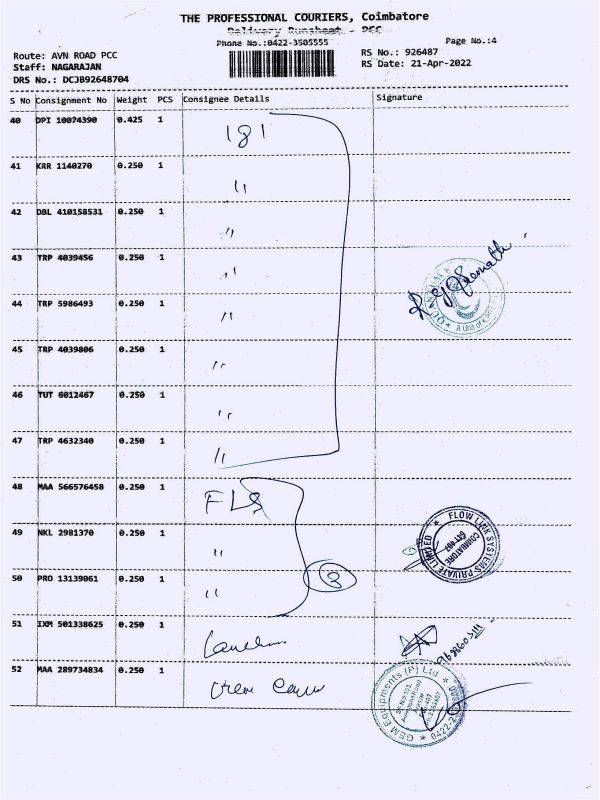 THE PROFESSIONAL COURIERS, Coimbatore
Delivery Runsheet - PCC
Phone No.:0422-3505555
Page No.:4
Route: AVN ROAD PCC
RS No.: 926487
Staff: NAGARAJAN
RS Date: 21-Apr-2022
DRS No.: DCJB92648704
S No Consignment No Weight PCS Consignee Details Signature
40 DPI 10074390 0.425 1
41 KRR 1140270 0.250 1 "
42 DBL 410158531 0.250 1 "
43 TRP 4039456 0.250 1 "
44 TRP 5986493 0.250 1 "
45 TRP 4039806 0.250 1 "
46 TUT 6012467 0.250 1 "
47 TRP 4632340 0.250 1 "
48 MAA 566576458 0.250 1 FLS
FLOW LINK SYSTEMS PRIVATE LIMITED
COIMBATORE
49 NKL 2981370 0.250 1 "
50 PRO 13139061 0.250 1 " 3
51 IXM 501338625 0.250 1
52 MAA 289734834 0.250 1
GEM Equipments (P) Ltd